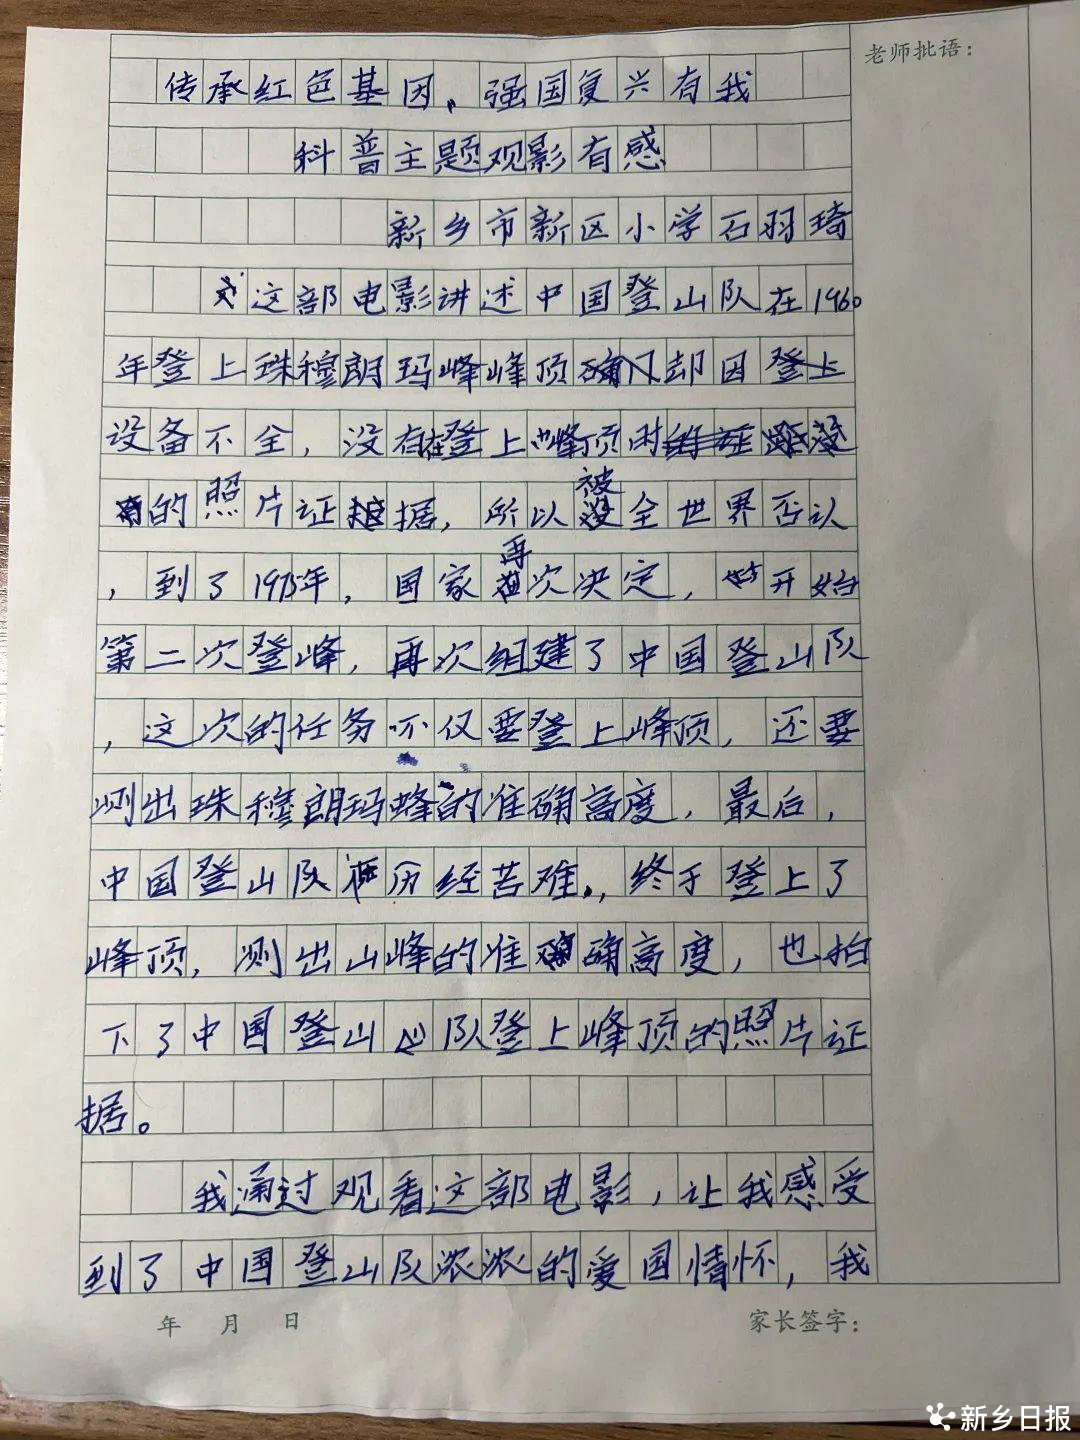 老师批语：
传承红色基因，强国复兴有我
科普主题观影有感
新乡市新区小学石羽琦
这部电影讲述中国登山队在1960
年登上珠穆朗玛峰峰顶 却因登上
设备不全，没有在登上峰顶时
的照片证据，所以被全世界否认
，到了1975年，国家再次决定，开始
第二次登峰，再次组建了中国登山队
，这次的任务不仅要登上峰顶，还要
测出珠穆朗玛蜂的准确高度，最后，
中国登山队历经苦难，终于登上了
峰顶，测出山峰的准确高度，也拍
下了中国登山队登上峰顶的照片证
据。
我通过观看这部电影，让我感受
到了中国登山队浓浓的爱国情怀，我
年 月 日 家长签字：
新乡日报